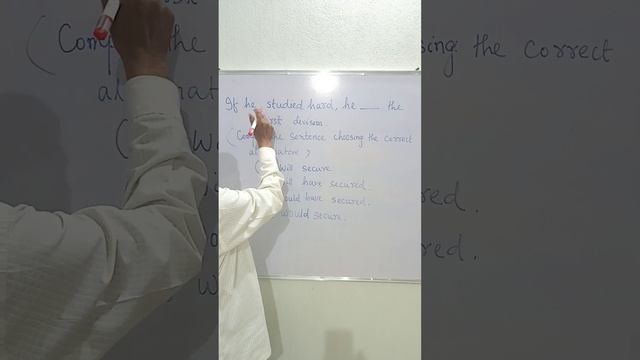 If he studied hard, he ___ the
first division.
( the sentence choosing the correct
)
will secure
will have secured.
would have secured.
would secure.